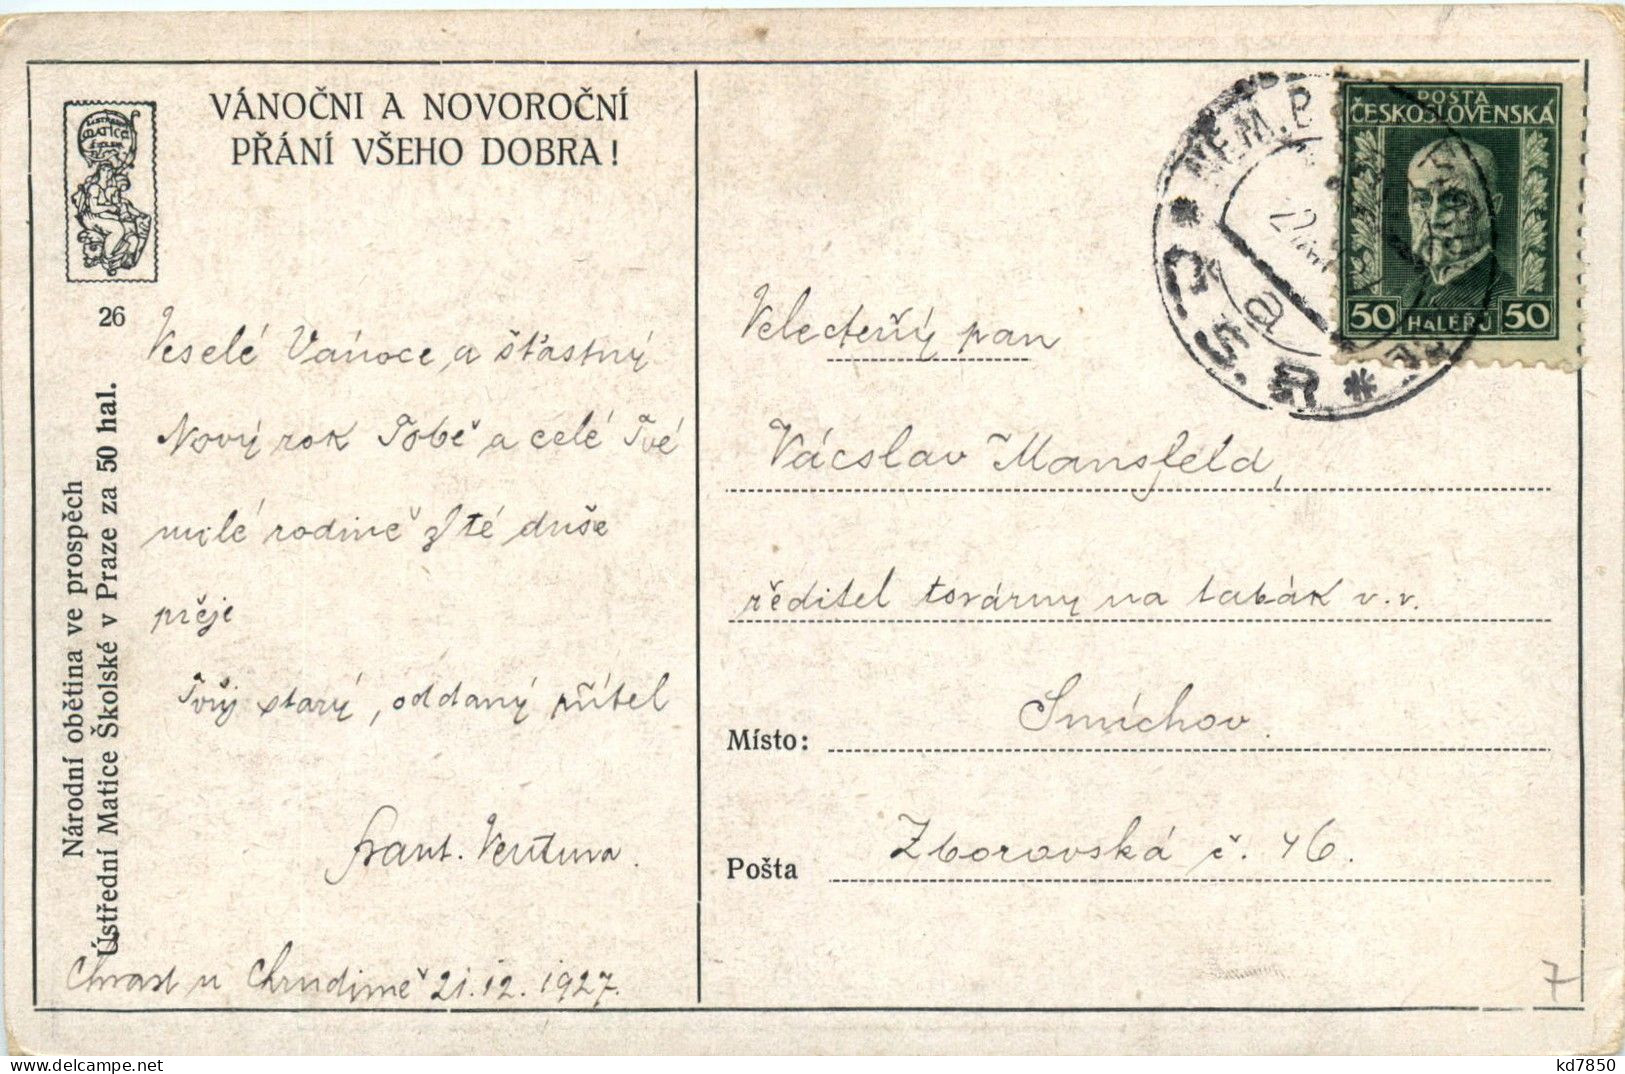 VÁNOČNI A NOVOROČNÍ
PŘÁNÍ VŠEHO DOBRA!
26
Národní obětina ve prospěch
Ústřední Matice Školské v Praze za 50 hal.
Veselé Vánoce, a šťastný
Nový rok Tobě a celé Tvé
milé rodině z té duše
přeje
Tvůj starý, oddaný přítel
Frant. Ventura.
Chrast u Chrudimě 21.12.1927.
POSTA
ČESKOSLOVENSKÁ
50 HALÉŘŮ 50
NĚM.
Č.S.R.
Velectěný pan
Vácslav Mansfeld,
ředitel továrny na tabák v.v.
Místo: Smíchov.
Pošta Zborovská č. 46.
7
kd7850